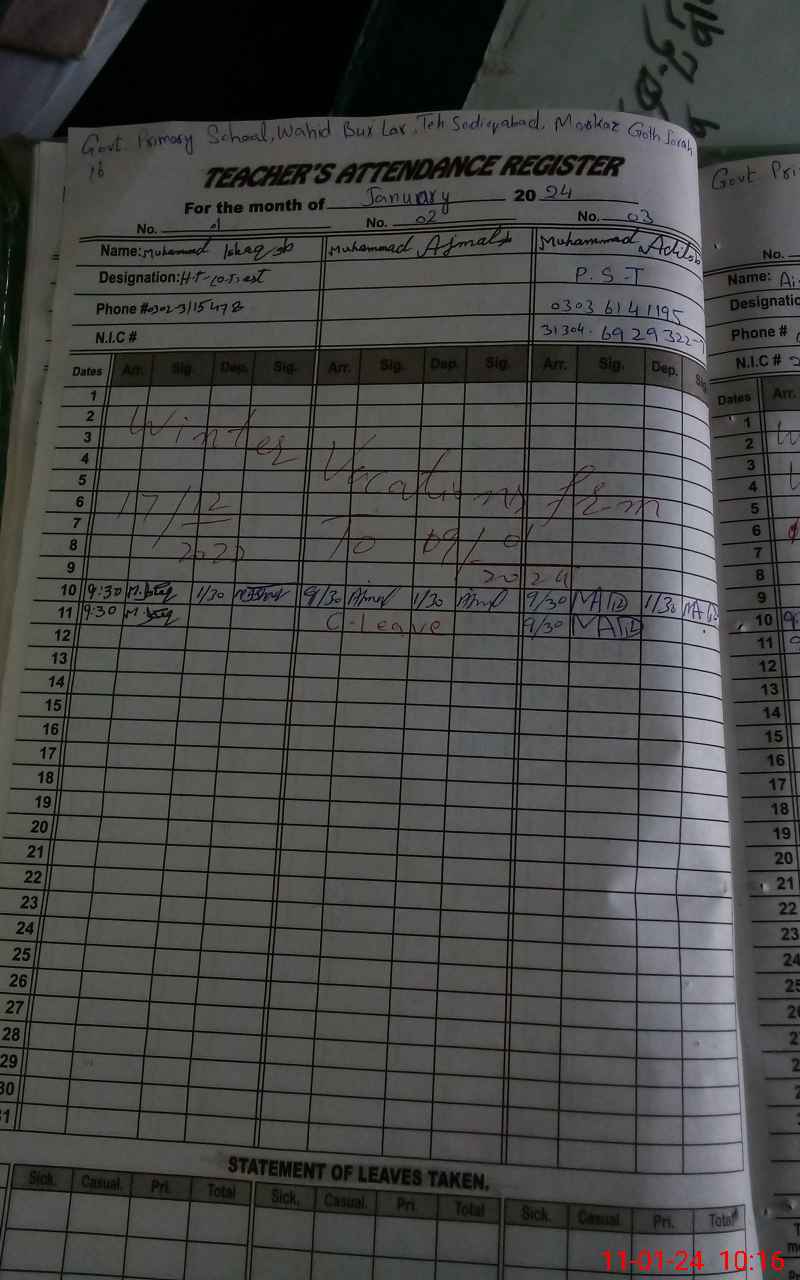 Govt. Primary School, Wahid Bux Lar, Teh Sadiqabad, Markaz Goth Jorah
16
TEACHER'S ATTENDANCE REGISTER
For the month of January 2024
No. 01 No. 02 No. 03
Name: Muhammad Ishaq sb Muhammad Ajmal sb Muhammad Adil sb
Designation: H.T P.S.T
Phone #0302-3115478 0303 6141195
N.I.C # 31304-6929322-7
Dates Arr. Sig. Dep. Sig. Arr. Sig. Dep. Sig. Arr. Sig. Dep. Sig.
1
2
3
4
5
6
7
8
9
Winter Vacations from
17/12 To 09/01
2024
10 9:30 M. Ishaq 1/30 9/30 Ajmal 1/30 Ajmal 9/30 MAdil 1/30 MAdil
11 9:30 M. Ishaq C-Leave 9/30 MAdil
12
13
14
15
16
17
18
19
20
21
22
23
24
25
26
27
28
29
30
31
STATEMENT OF LEAVES TAKEN.
Sick. Casual. Pri. Total Sick. Casual. Pri. Total Sick. Casual. Pri. Total
Govt Pri
No.
Name:
Designatio
Phone #
N.I.C #
Dates Arr.
1
2
3
4
5
6
7
8
9
10
11
12
13
14
15
16
17
18
19
20
21
22
23
24
11-01-24 10:16